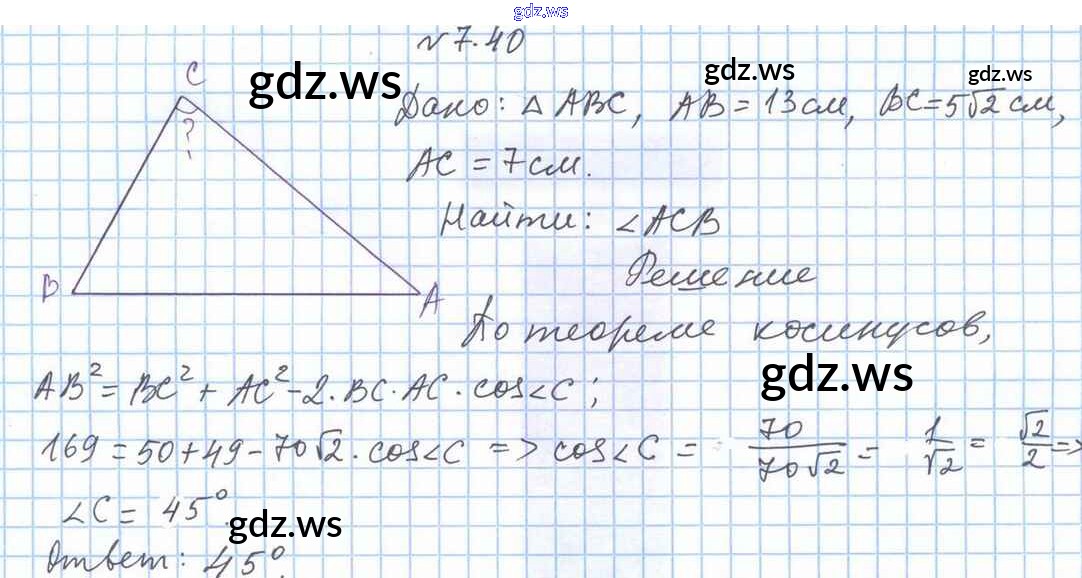 gdz.ws
№ 7.40
C
gdz.ws
gdz.ws
gdz.ws
Дано: △ ABC, AB = 13 см, BC = 5√2 см,
?
AC = 7 см.
Найти: ∠ACB
Решение
B
A
По теореме косинусов,
gdz.ws
AB² = BC² + AC² - 2·BC·AC·cos∠C;
169 = 50 + 49 - 70√2·cos∠C => cos∠C = 70/70√2 = 1/√2 = √2/2 =>
∠C = 45°.
gdz.ws
Ответ: 45°.